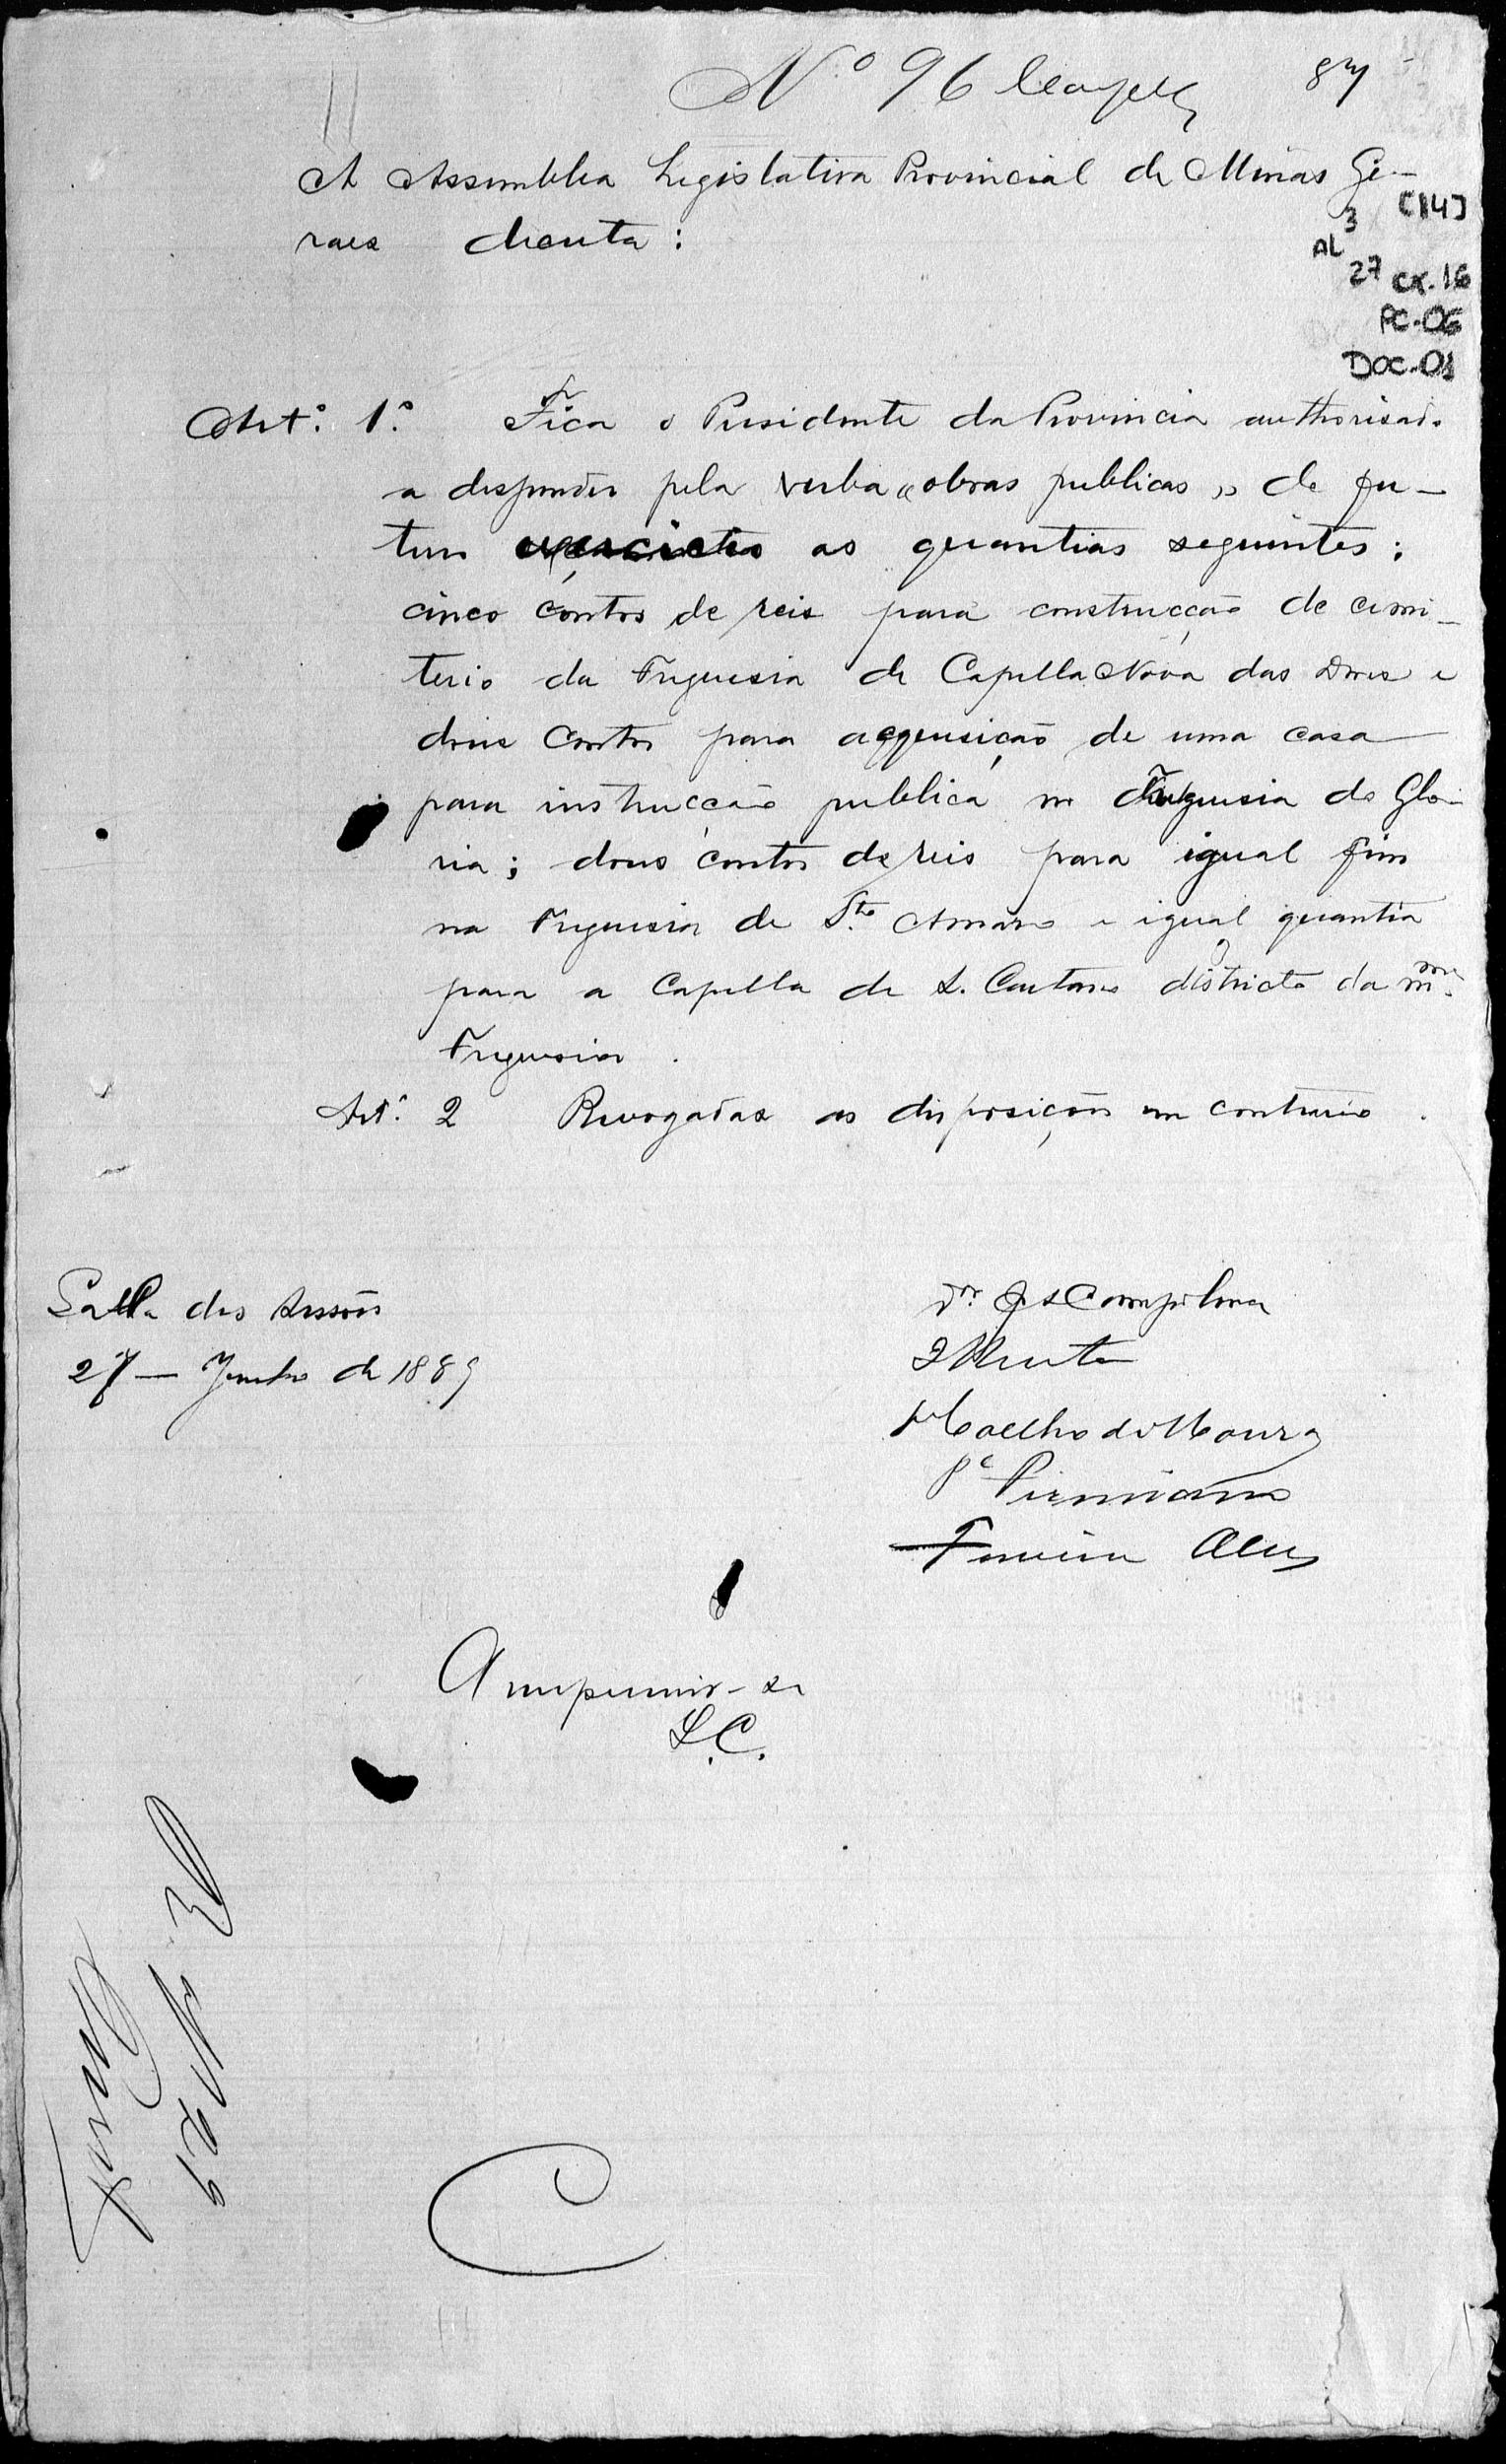 Nº 96
87
A Assemblea Legislativa Provincial de Minas Ge-
raes decreta:
[14]
3
AL
27 cx. 16
PC-06
DOC-01
Art.º 1.º Fica o Presidente da Provincia authorisado
a despender pela verba "obras publicas" do fu-
turo exercicio as quantias seguintes:
cinco contos de reis para construcção do cemi-
terio da Freguesia de Capella Nova das Dores e
dous contos para acquisição de uma casa
para instrucção publica na Freguesia da Glo-
ria; dous contos de reis para igual fim
na Freguesia de Sto. Amaro e igual quantia
para a Capella de S. Caetano districto da mma.
Freguesia.
Art.º 2 Revogadas as disposições em contrario.
Salla das Sessões
27 – Junho de 1889
Dr.
Coelho de Moura
Pe. Firmiano
Ferreira Alves
A imprimir-se
S.C.
C